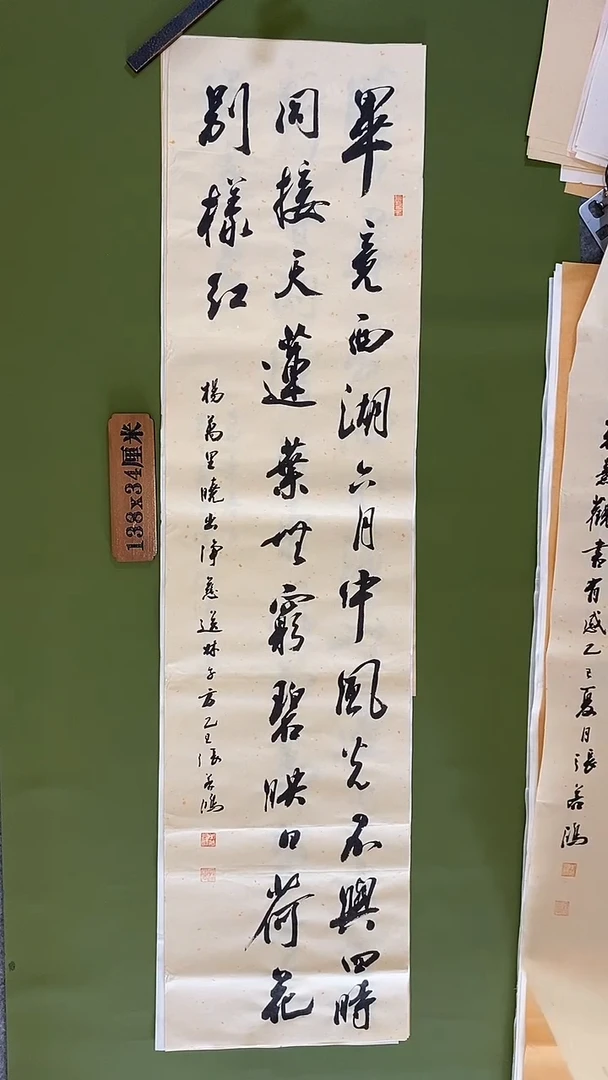 畢竟西湖六月中風光不與四時
同接天蓮葉無窮碧映日荷花
別樣紅
楊萬里曉出淨慈送林子方乙巳張善鴻
138x34厘米
熹觀書有感乙巳夏月張善鴻